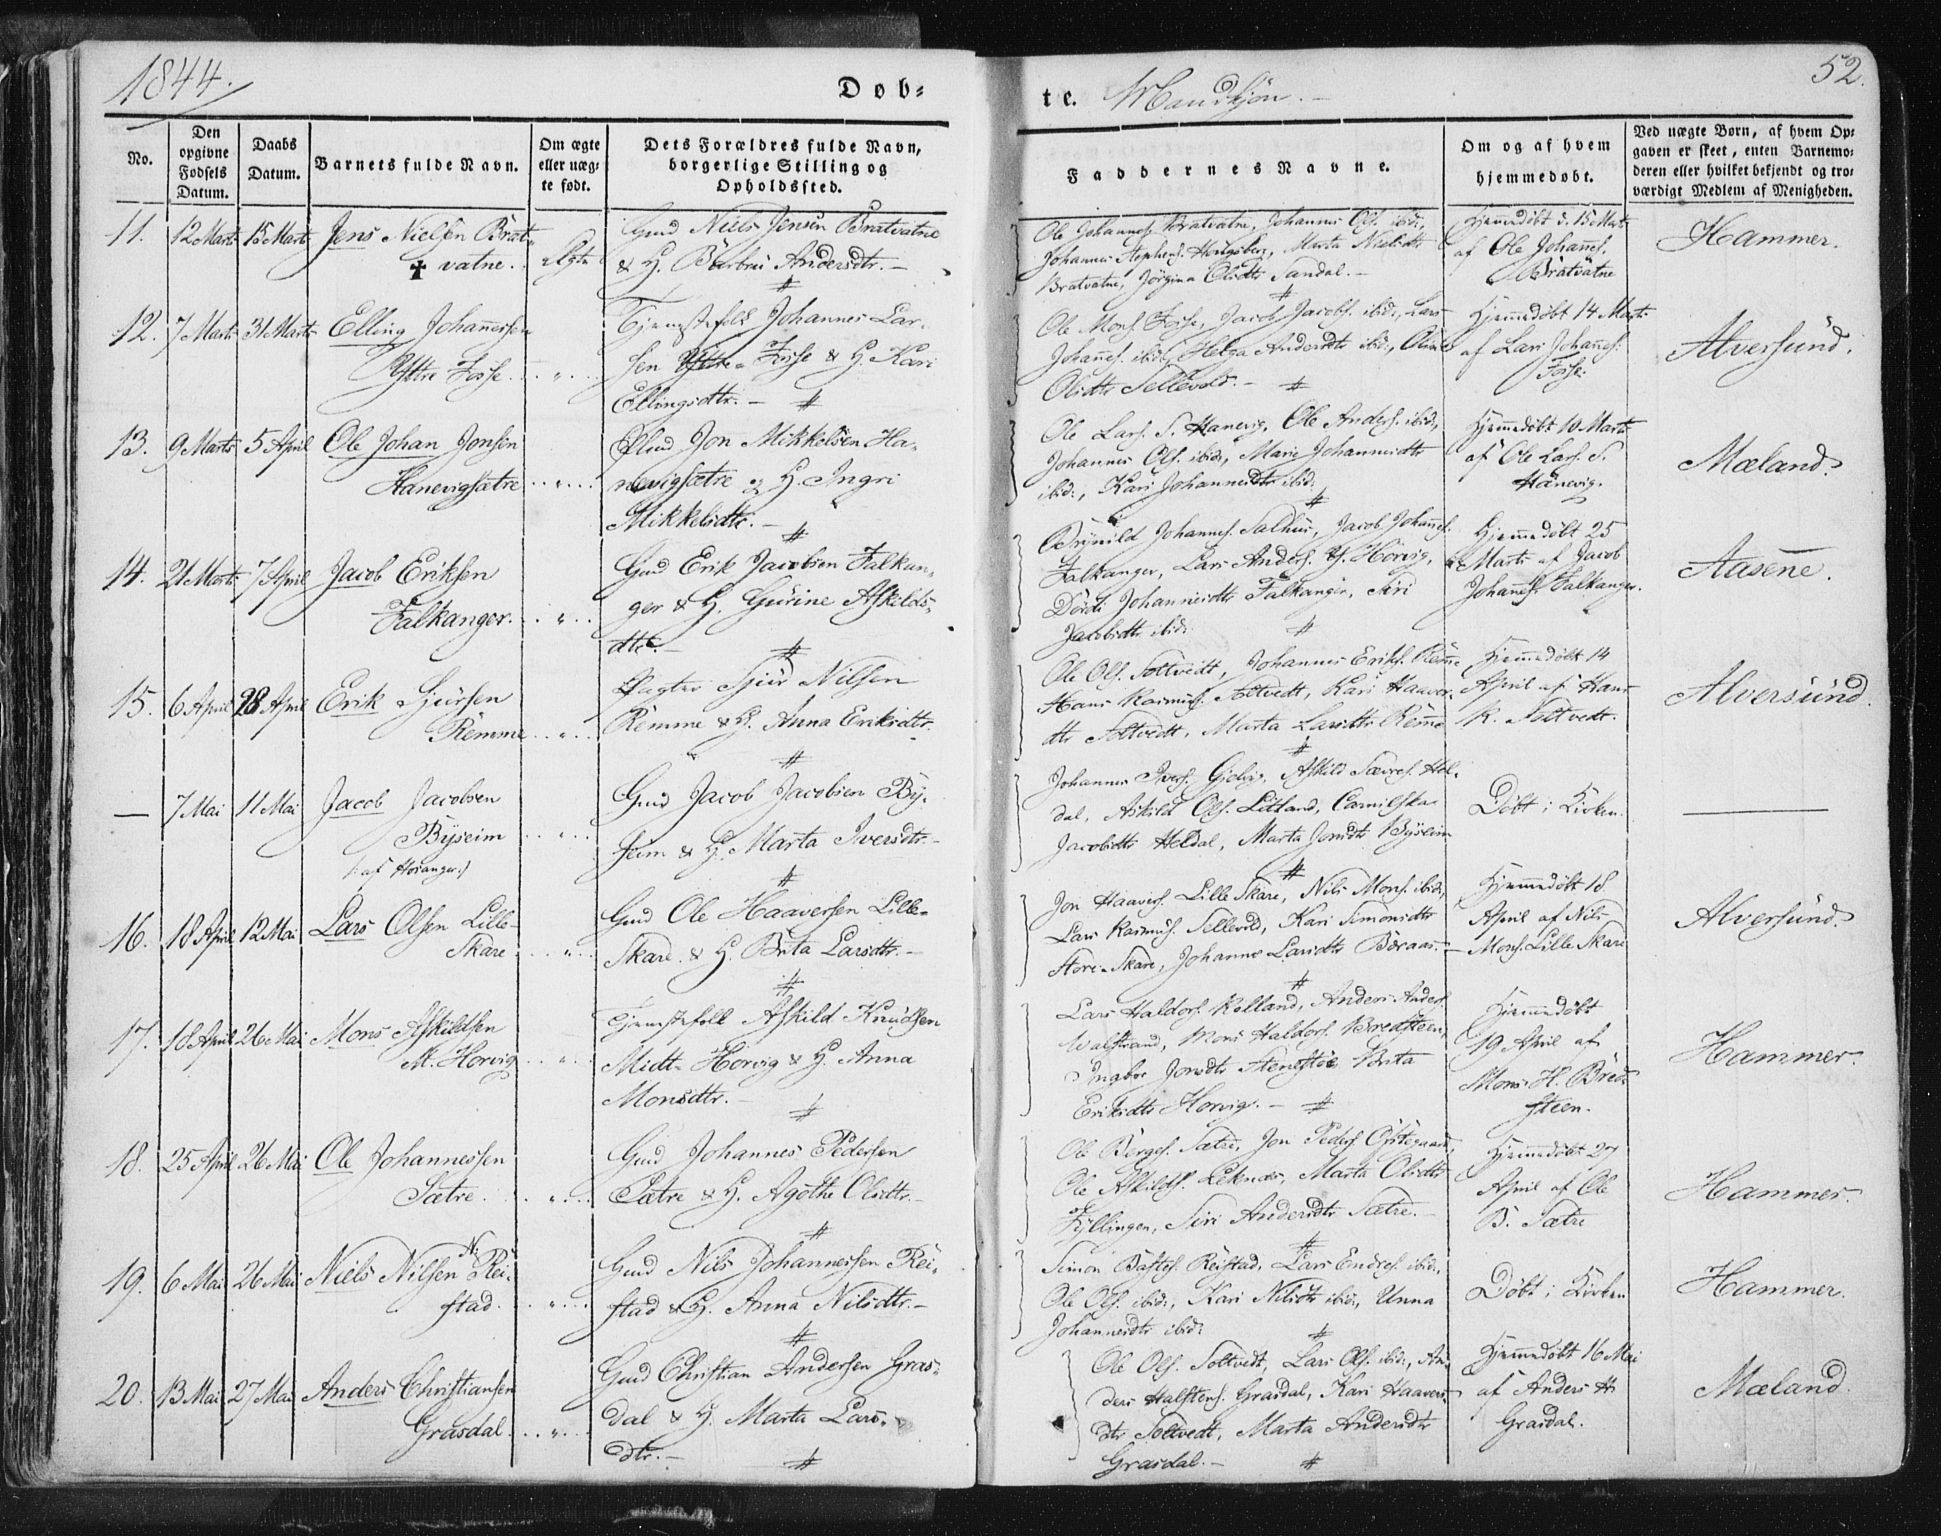 1844.
Døb-
te. Mandkjøn.
52.
No.
Den opgivne Fødsels Datum.
Daabs Datum.
Barnets fulde Navn.
Om ægte eller uægte født.
Dets Forældres fulde Navn, borgerlige Stilling og Opholdssted.
Faddernes Navne.
Om og af hvem hjemmedøbt.
Ved uægte Børn, af hvem Opgaven er skeet, enten Barnemoderen eller hvilket bekjendt og troværdigt Medlem af Menigheden.
11. 12 Marts 15 Marts Jens Nielsen Brat-
vatne. Ægte
Gmd Niels Jensen Bratvatne
& H. Barbru Andersdtr. —
Ole Johannes. Bratvatne, Johannes Ols. ibid:,
Johannes Stephens. , Marta Nielsdtr
Bratvatne, Jørgina Olsdtr Sandal. —
Hjemmedøbt d. 15 Marts
af Ole Johannes.
Bratvatne
Hammer.
12. 7 Marts 31 Marts Elling Johannessen
Yttre Fosse. "
Tjenestefolk Johannes Lar-
sen Yttre-Fosse & H. Kari
Ellingsdtr. —
Ole Mons. Fosse, Jacob Jacobs. ibid:, Lars
Johannes. ibid:, Helga Andersdtr ibid:,
Olsdtr Sellevold. —
Hjemmedøbt 14 Marts
af Lars Johannes.
Fosse.
Alversund.
13. 9 Marts 5 April Ole Johan Jonsen
Hanevigsætre "
Jon Mikkelsen Ha-
nevigsætre og H. Ingri
Mikkelsdtr. —
Ole Lars. S. Hanevig, Ole Anders. ibid:,
Johannes Ols. ibid:, Marie Johannesdtr
ibid:, Kari Johannesdtr ibid:
Hjemmedøbt 10 Marts
af Ole Lars. S.
Hanevig.
Mæland.
14. 21 Marts 7 April Jacob Eriksen
Falkanger. "
Gmd Erik Jacobsen Falkan-
ger & H. Gurine Askilds-
dtr. —
Brynild Johannes. Salhus, Jacob Johannes.
Falkanger, Lars Anders. Y. Horvig,
Dorde Johannesdtr Falkanger, Siri
Jacobsdtr ibid:
Hjemmedøbt 25
Marts af Jacob
Johannes. Falkanger.
Aasene.
15. 6 April 28 April Erik Sjursen
Remme "
Pagter Sjur Nilsen
Remme & H. Anna Eriksdtr.
Ole Ols. Toltvedt, Johannes Eriks. Remme
Hans Rasmus. Toltvedt, Kari Haavers-
dtr Toltvedt, Marta Larsdtr Remme
Hjemmedøbt 14
April af Hans
R. Toltvedt.
Alversund.
— 7 Mai 11 Mai Jacob Jacobsen
Byseim
/: af Hosanger :/
"
Gmd Jacob Jacobsen By-
seim & H. Marta Iversdtr. —
Johannes Ivers. Gjelvig, Askild Sævers. Hel-
dal, Askild Ols. Litland, Camilska
Jacobsdtr Heldal, Marta Jonsdtr Byseim
Døbt i Kirken.
—
16. 18 April 12 Mai Lars Olsen Lille-
Skare "
Gmd Ole Haaversen Lille-
Skare & H. Brita Larsdtr. —
Jon Haavers. Lille Skare, Nils Mons. ibid:,
Lars Rasmus. Sellevold, Kari Simonsdtr
Store-Skare, Johanne Larsdtr Boraas. —
Hjemmedøbt 18
April af Nils
Mons. Lille Skare
Alversund.
17. 18 April 26 Mai Mons Askildsen
M. Horvig "
Tjenestefolk Askild Knudsen
Midt-Horvig & H. Anna
Monsdtr. —
Lars Haldors. Rolland, Anders Anders.
Walstrand, Mons Haldors. Bredsteen,
Ingbor Jonsdtr , Brita
Eriksdtr Horvig. —
Hjemmedøbt
19 April af
Mons H. Bred-
steen.
Hammer.
18. 25 April 26 Mai Ole Johannessen
Sætre. "
Gmd Johannes Pedersen
Sætre & H. Agothe Olsdtr. —
Ole Berges. Sætre, Jon Peders. ,
Ole Askilds. Leknæs, Marta Olsdtr
Fyllingen, Siri Andersdtr Sætre. —
Hjemmedøbt 27
April af Ole
B. Sætre
Hammer.
19. 6 Mai 26 Mai Niels Nilsen N. Rei-
stad. "
Gmd Nils Johannessen Rei-
stad & H. Anna Nilsdtr. —
Simon Bastes. Reistad, Lars Endres. ibid:,
Ole Ols. ibid:, Kari Nilsdtr ibid:, Unna
Johannesdtr ibid:
Døbt i Kirken
Hammer.
20. 13 Mai 27 Mai Anders Christiansen
Grasdal. "
Gmd Christian Andersen Gras-
dal & H. Marta Lars-
dtr. —
Ole Ols. Toltvedt, Lars Ols. ibid:, An-
ders Halstens. Grasdal, Kari Haavers-
dtr Toltvedt, Marta Andersdtr
Grasdal. —
Hjemmedøbt 16 Mai
af Anders H.
Grasdal.
Mæland.